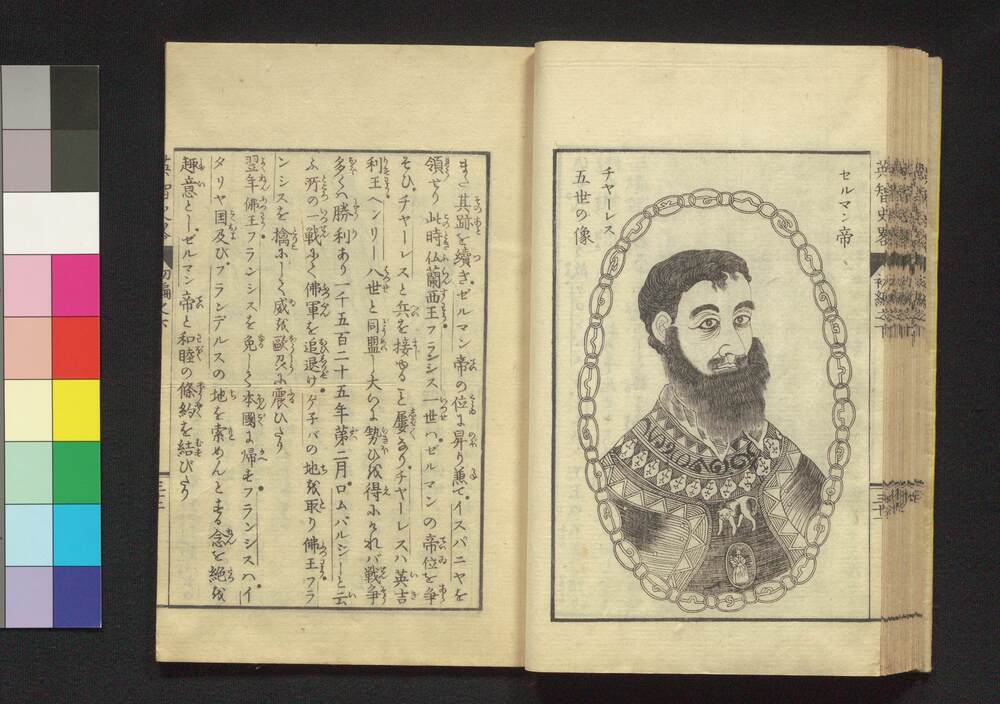 セルマン帝
チヤーレス
五世の像
英智史畧
初編之下
三十一
また其跡を續ぎゼルマン帝の位に昇り兼てイスパニヤを
領せり此時仏蘭西王フランシス一世ハゼルマンの帝位を争
そひチヤーレスと兵を接ゆること屢なりチヤーレスハ英吉
利王ヘンリー八世と同盟し大に勢ひを得たれバ戦争
多くハ勝利あり一千五百二十五年第二月ロムバルシーと云
ふ所の一戦にて佛軍を追退け
の地を取り佛王フラ
ンシスを擒にして威を歐羅に震ひたり
翌年佛王フランシスを免して本國に帰せフランシスハイ
タリヤ国及びフランデルスの地を索めんとする念を絶ち
趣意としゼルマン帝と和睦の條約を結びたり